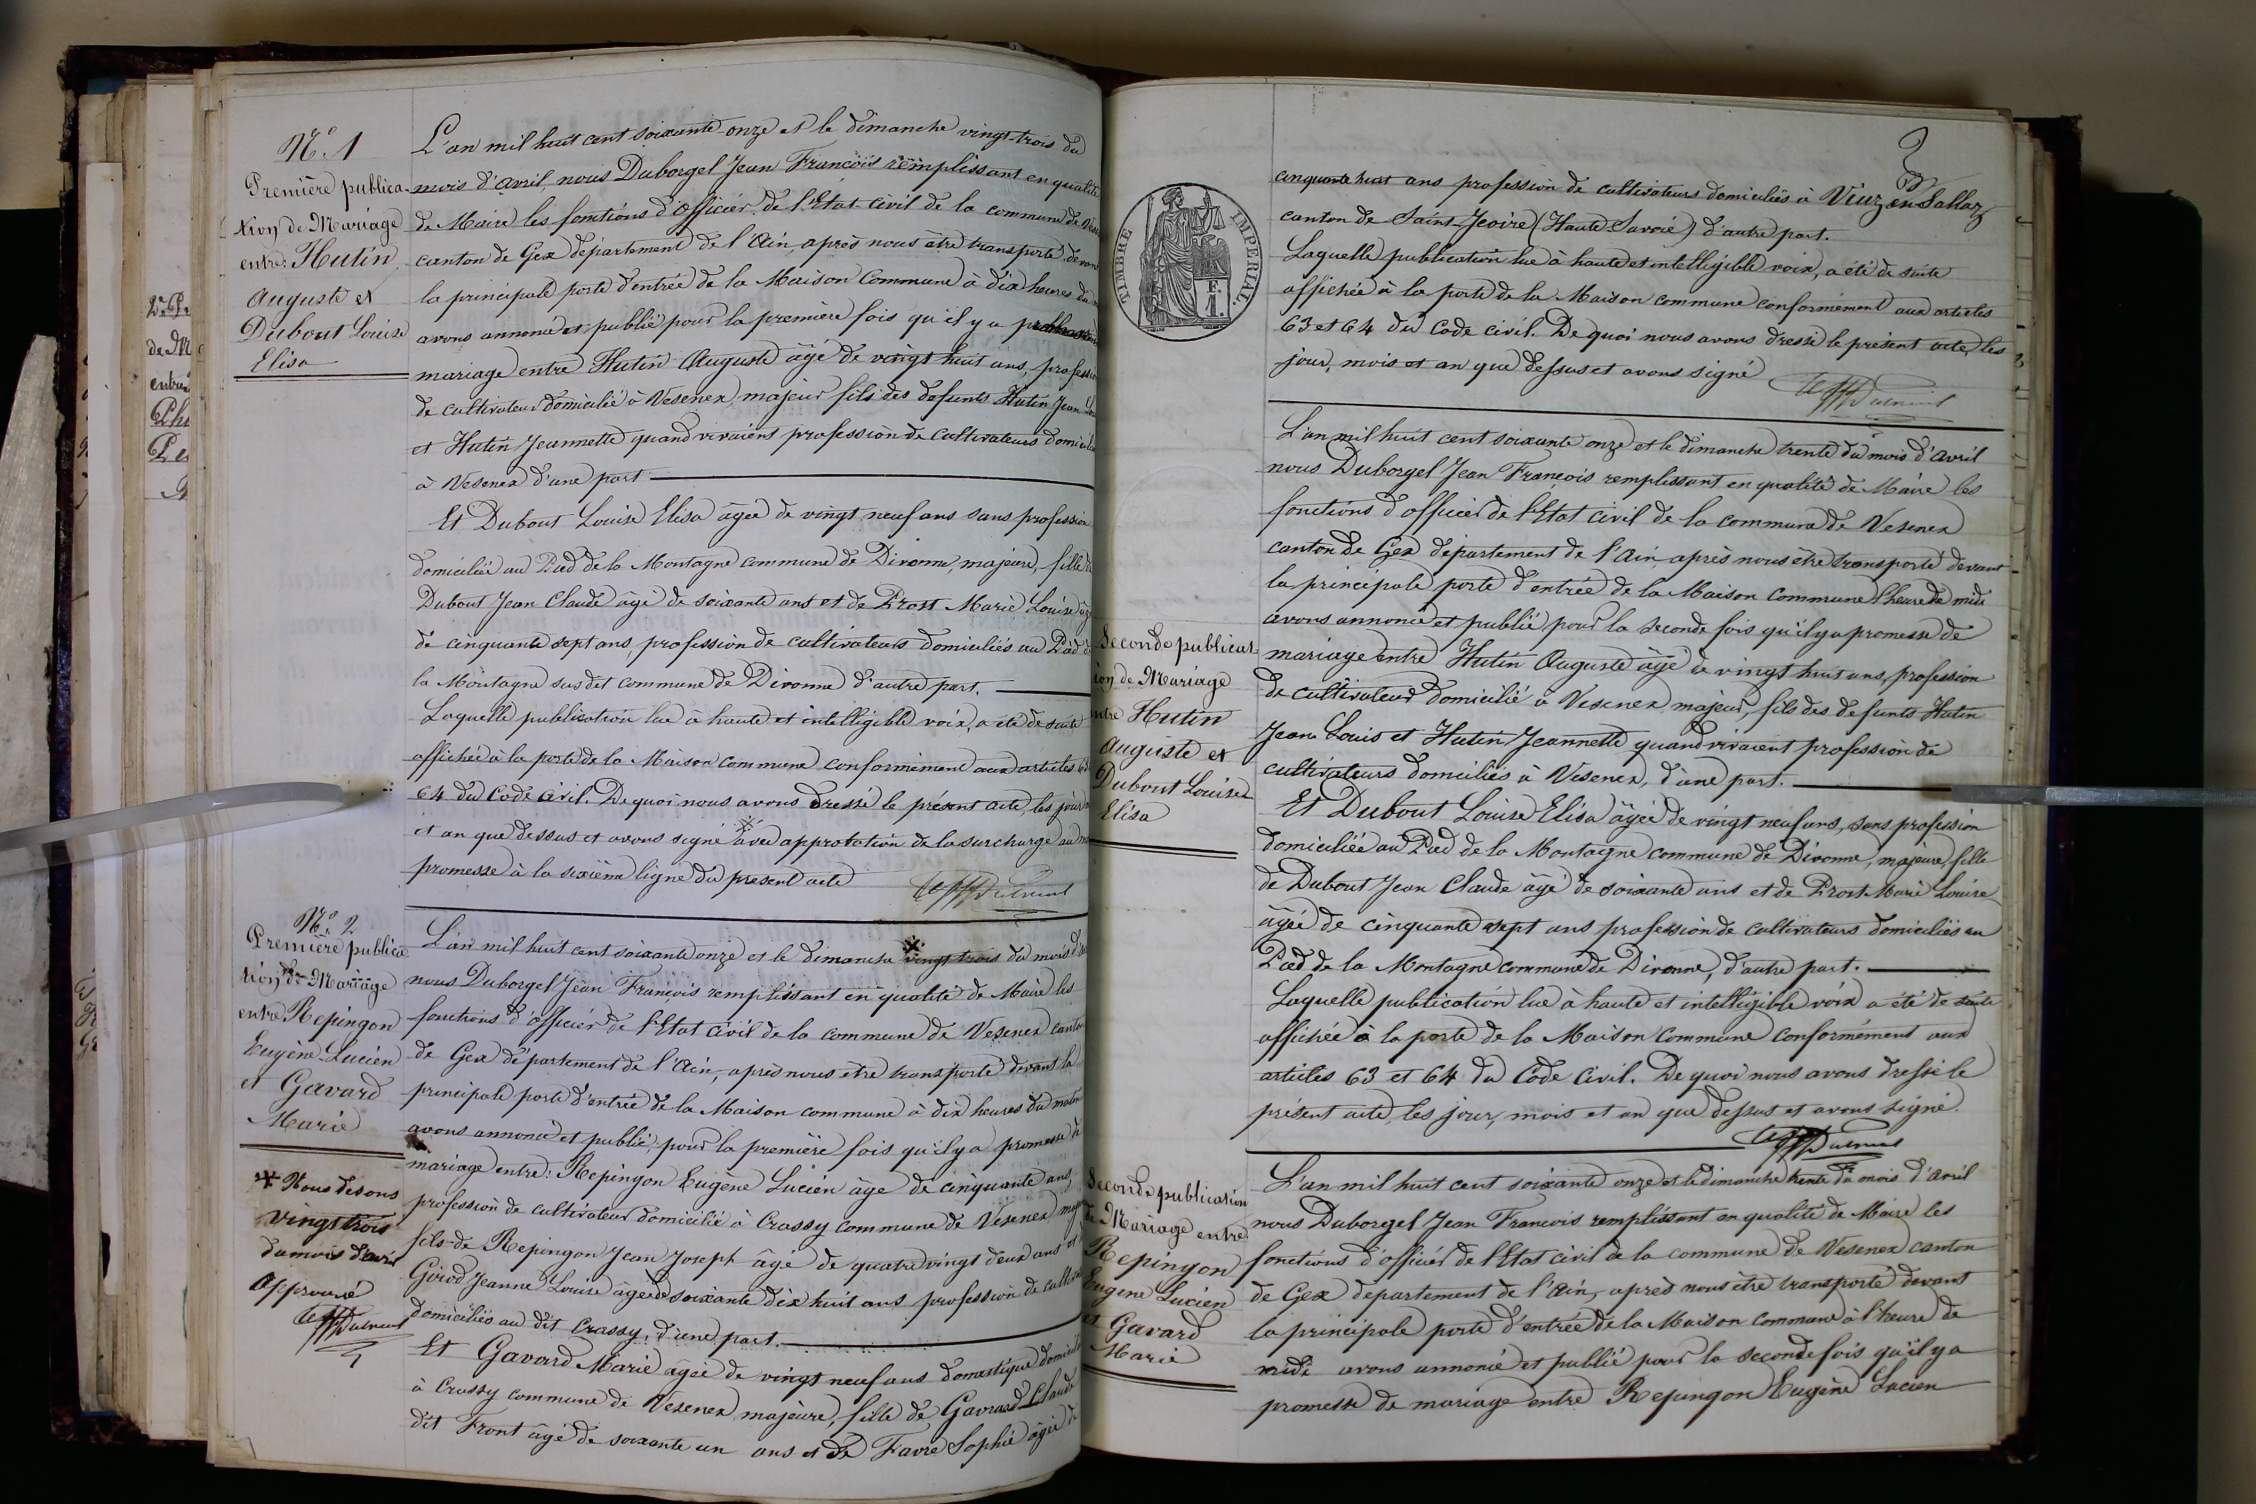 N.o 1
Première publica-
tion de Mariage
entre: Hutin
Auguste et
Dubout Louise
Elisa
L'an mil huit cent soixante-onze et le dimanche vingt-trois du
mois d'avril, nous Duborgel Jean François remplissant en qualité
de Maire les fonctions d'officier de l'Etat civil de la commune de
canton de Gex département de l'Ain, après nous être transporté devant
la principale porte d'entrée de la Maison Commune à dix heures du
avons annoncé et publié pour la première fois qu'il y a
mariage entre Hutin Auguste âgé de vingt huit ans, profession
de cultivateur domicilié à Vesenex, majeur fils des défunts Hutin Jean
et Hutin Jeannette quand vivaient profession de cultivateurs domiciliés
à Vesenex d'une part
Et Dubout Louise Elisa âgée de vingt neuf ans sans profession
domiciliée au Pied de la Montagne commune de Divonne, majeure, fille de
Dubout Jean Claude âgé de soixante ans et de Prost Marie Louise âgée
de cinquante sept ans, profession de cultivateurs domiciliés au Pied de
la Montagne susdit commune de Divonne d'autre part.
Laquelle publication lue à haute et intelligible voix, a été de suite
affichée à la porte de la Maison commune conformément aux articles 63
64 du Code civil. De quoi nous avons dressé le présent acte, les jour
et an que dessus et avons signé avec approbation de la surcharge au mot
promesse à la sixième ligne du présent acte
N.o 2
Première publica-
tion de Mariage
entre Repingon
Eugène Lucien
et Gavard
Marie
* Nous disons
vingt trois
du mois d'avril
Approuvé
L'an mil huit cent soixante onze et le dimanche * vingt trois du mois d'avril
nous Duborgel Jean François remplissant en qualité de Maire les
fonctions d'officier de l'Etat civil de la commune de Vesenex canton
de Gex département de l'Ain, après nous être transporté devant la
principale porte d'entrée de la Maison commune à dix heures du matin
avons annoncé et publié, pour la première fois qu'il y a promesse de
mariage entre: Repingon Eugène Lucien âgé de cinquante ans,
profession de cultivateur domicilié à Crassy commune de Vesenex majeur
fils de Repingon Jean Joseph âgé de quatre vingt deux ans et
Girod Jeanne Louise âgée de soixante dix huit ans profession de
domiciliés au dit Crassy, d'une part.
Et Gavard Marie agée de vingt neuf ans domestique domiciliée
à Crassy commune de Vesenex majeure, fille de Gavard Claude
dit Front âgé de soixante un ans et de Favre Sophie âgée de
3
cinquante huit ans profession de cultivateurs domiciliés à Viuz en Sallaz
canton de Saint Jeoire (Haute Savoie) d'autre part.
Laquelle publication lue à haute et intelligible voix, a été de suite
affichée à la porte de la Maison commune conformément aux articles
63 et 64 du Code civil. De quoi nous avons dressé le présent acte, les
jour, mois et an que dessus et avons signé
TIMBRE IMPERIAL
1F.
Seconde publicat-
ion de Mariage
entre Hutin
Auguste et
Dubout Louise
Elisa
L'an mil huit cent soixante onze et le dimanche trente du mois d'avril
nous Duborgel Jean François remplissant en qualité de Maire les
fonctions d'officier de l'Etat civil de la commune de Vesenex
canton de Gex département de l'Ain, après nous être transporté devant
la principale porte d'entrée de la Maison commune l'heure de midi
avons annoncé et publié pour la seconde fois qu'il y a promesse de
mariage entre Hutin Auguste âgé de vingt huit ans, profession
de cultivateur domicilié à Vesenex majeur, fils des défunts Hutin
Jean Louis et Hutin Jeannette quand vivaient profession de
cultivateurs domiciliés à Vesenex, d'une part.
Et Dubout Louise Elisa âgée de vingt neuf ans, sans profession
domiciliée au Pied de la Montagne commune de Divonne, majeure, fille
de Dubout Jean Claude âgé de soixante ans et de Prost Marie Louise
âgée de cinquante sept ans profession de cultivateurs domiciliés au
Pied de la Montagne commune de Divonne, d'autre part.
Laquelle publication lue à haute et intelligible voix a été de suite
affichée à la porte de la Maison commune conformément aux
articles 63 et 64 du Code Civil. De quoi nous avons dressé le
présent acte, les jour, mois et an que dessus et avons signé.
Seconde publication
de Mariage entre
Repingon
Eugène Lucien
et Gavard
Marie
L'an mil huit cent soixante onze et le dimanche trente du mois d'avril
nous Duborgel Jean François remplissant en qualité de Maire les
fonctions d'officier de l'Etat civil de la commune de Vesenex canton
de Gex département de l'Ain, après nous être transporté devant
la principale porte d'entrée de la Maison commune à l'heure de
midi avons annoncé et publié pour la seconde fois qu'il y a
promesse de mariage entre Repingon Eugène Lucien